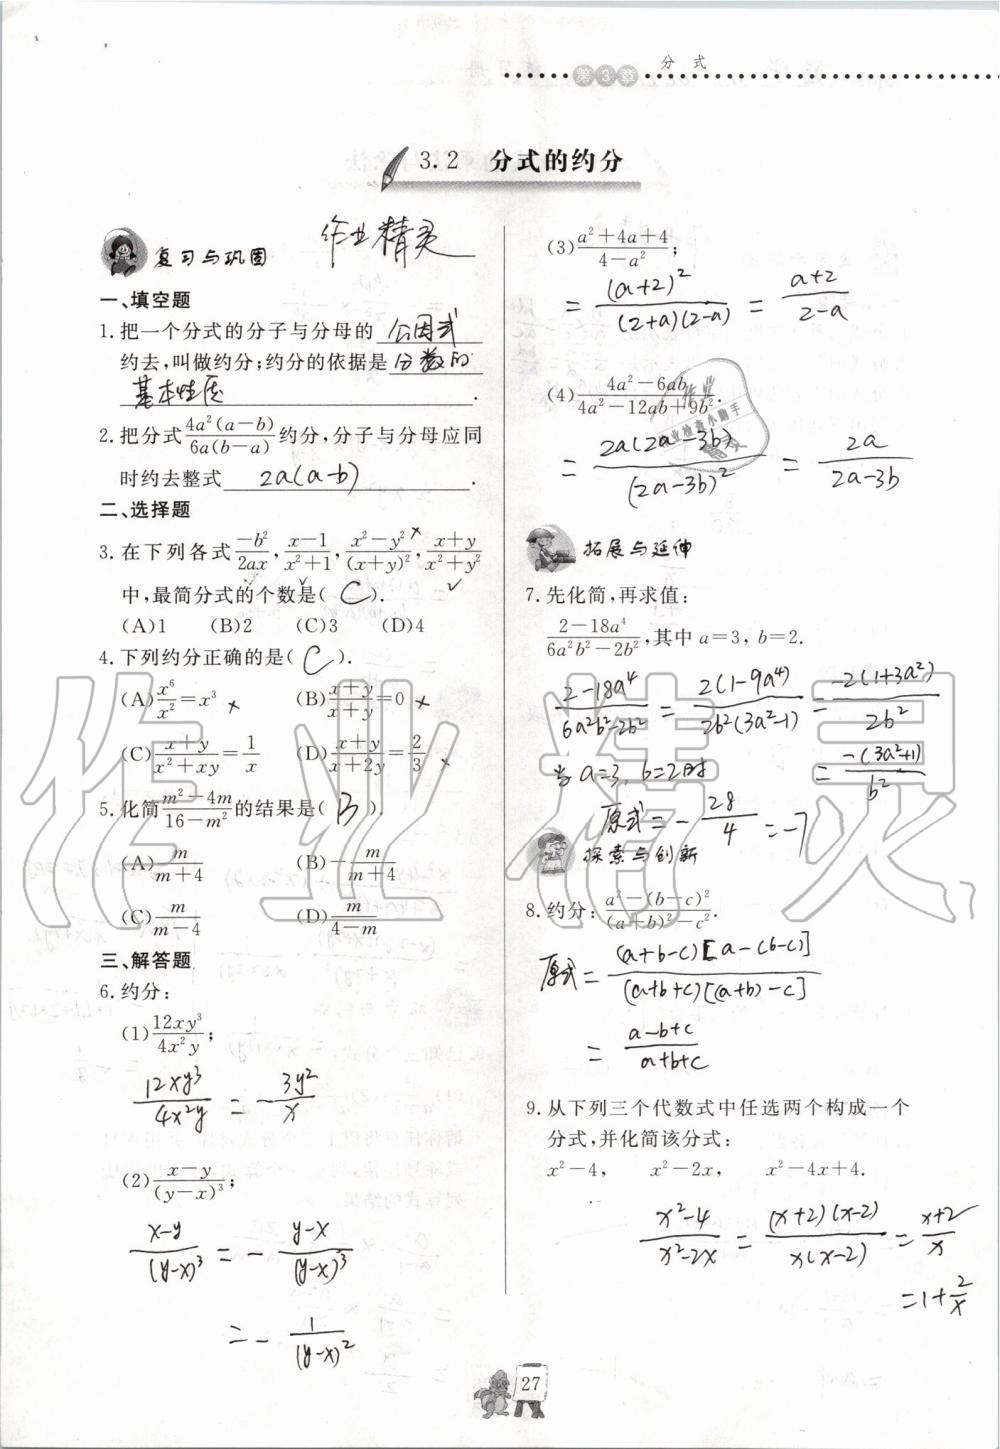 第3章 分式
3.2 分式的约分
作业精灵
复习与巩固
一、填空题
1.把一个分式的分子与分母的 公因式
约去,叫做约分;约分的依据是 分数的
基本性质 .
2.把分式\frac{4a²(a-b)}{6a(b-a)}约分,分子与分母应同
时约去整式 2a(a-b) .
二、选择题
3.在下列各式\frac{-b²}{2ax},\frac{x-1}{x²+1},\frac{x²-y²}{(x+y)²},\frac{x+y}{x²+y²}
中,最简分式的个数是( C ).
(A)1 (B)2 (C)3 (D)4
4.下列约分正确的是( C ).
(A)\frac{x⁶}{x²}=x³ × (B)\frac{x+y}{x+y}=0 ×
(C)\frac{x+y}{x²+xy}=\frac{1}{x} (D)\frac{x+y}{x+2y}=\frac{2}{3} ×
5.化简\frac{m²-4m}{16-m²}的结果是( B ).
(A)\frac{m}{m+4} (B)-\frac{m}{m+4}
(C)\frac{m}{m-4} (D)\frac{m}{4-m}
三、解答题
6.约分:
(1)\frac{12xy³}{4x²y};
\frac{12xy³}{4x²y} = \frac{3y²}{x}
(2)\frac{x-y}{(y-x)³};
\frac{x-y}{(y-x)³} = -\frac{y-x}{(y-x)³}
= -\frac{1}{(y-x)²}
(3)\frac{a²+4a+4}{4-a²};
= \frac{(a+2)²}{(2+a)(2-a)} = \frac{a+2}{2-a}
(4)\frac{4a²-6ab}{4a²-12ab+9b²}.
= \frac{2a(2a-3b)}{(2a-3b)²} = \frac{2a}{2a-3b}
拓展与延伸
7.先化简,再求值:
\frac{2-18a⁴}{6a²b²-2b²},其中a=3,b=2.
\frac{2-18a⁴}{6a²b²-2b²} = \frac{2(1-9a⁴)}{2b²(3a²-1)} = \frac{-2(1+3a²)}{2b²}
= \frac{-(3a²+1)}{b²}
当a=3,b=2时
原式=-\frac{28}{4}=-7
探索与创新
8.约分:\frac{a²-(b-c)²}{(a+b)²-c²}.
原式=\frac{(a+b-c)[a-(b-c)]}{(a+b+c)[(a+b)-c]}
= \frac{a-b+c}{a+b+c}
9.从下列三个代数式中任选两个构成一个
分式,并化简该分式:
x²-4, x²-2x, x²-4x+4.
\frac{x²-4}{x²-2x} = \frac{(x+2)(x-2)}{x(x-2)} = \frac{x+2}{x}
=1+\frac{2}{x}
27
作业精灵